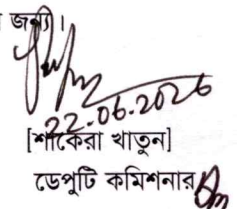 জন্য।
22.06.2026
[শাকেরা খাতুন]
ডেপুটি কমিশনার